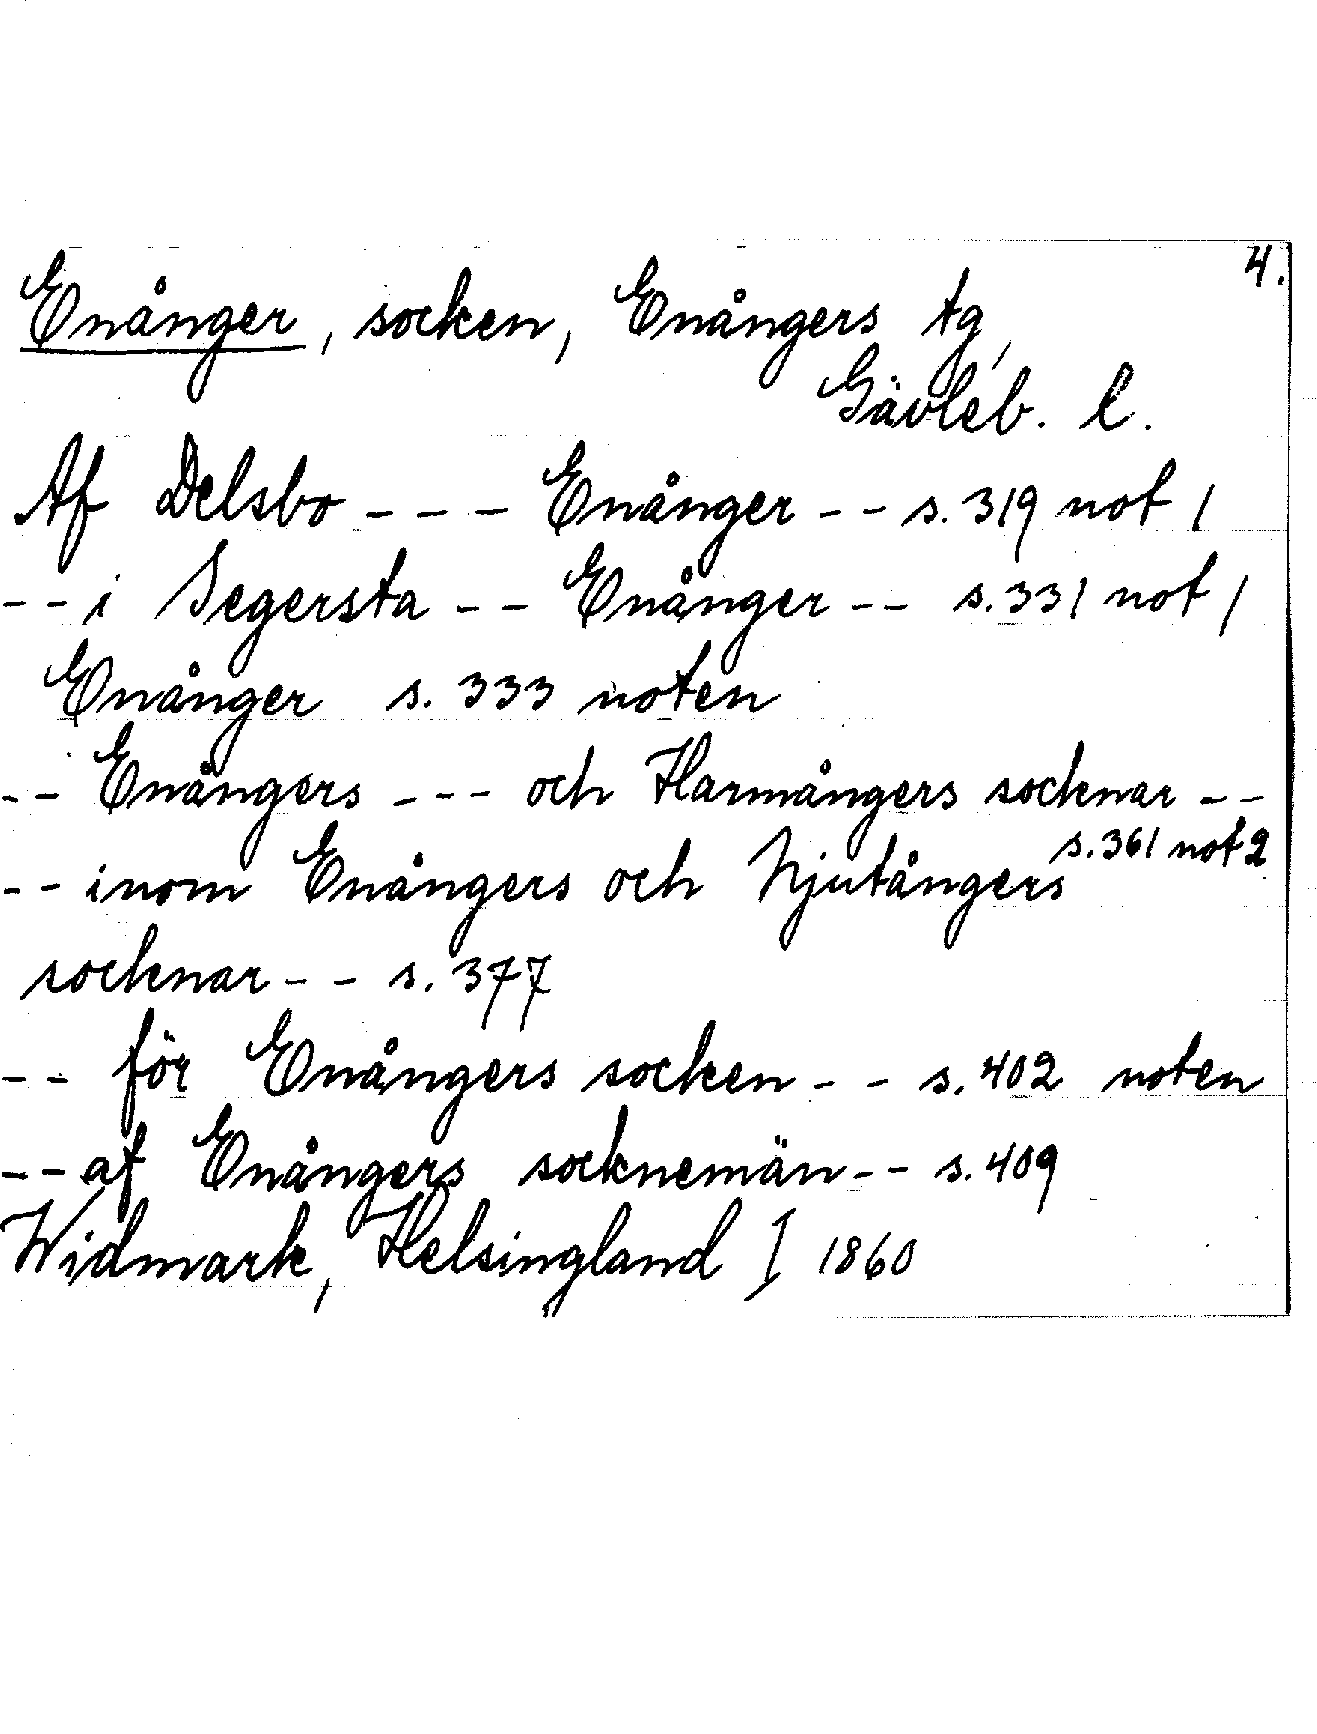 4.
Enånger, socken, Enångers tg,
Gävleb. l.
Af Delsbo - - - Enånger - - s. 319 not 1
- - i Segersta - - Enånger - - s. 331 not 1
Enånger s. 333 noten
- - Enångers - - - och Harmångers socknar - -
s. 361 not 2
- - inom Enångers och Njutångers
socknar - - s. 377
- - för Enångers socken - - s. 402 noten
- - af Enångers socknemän - - s. 409
Widmark, Helsingland I 1860